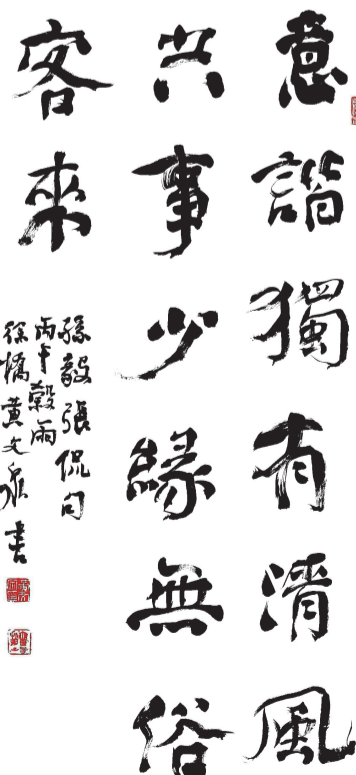 意諧獨有清風
共事少緣無俗
客來
孫毅張侃句
丙午穀雨
徐橋黄文泉書